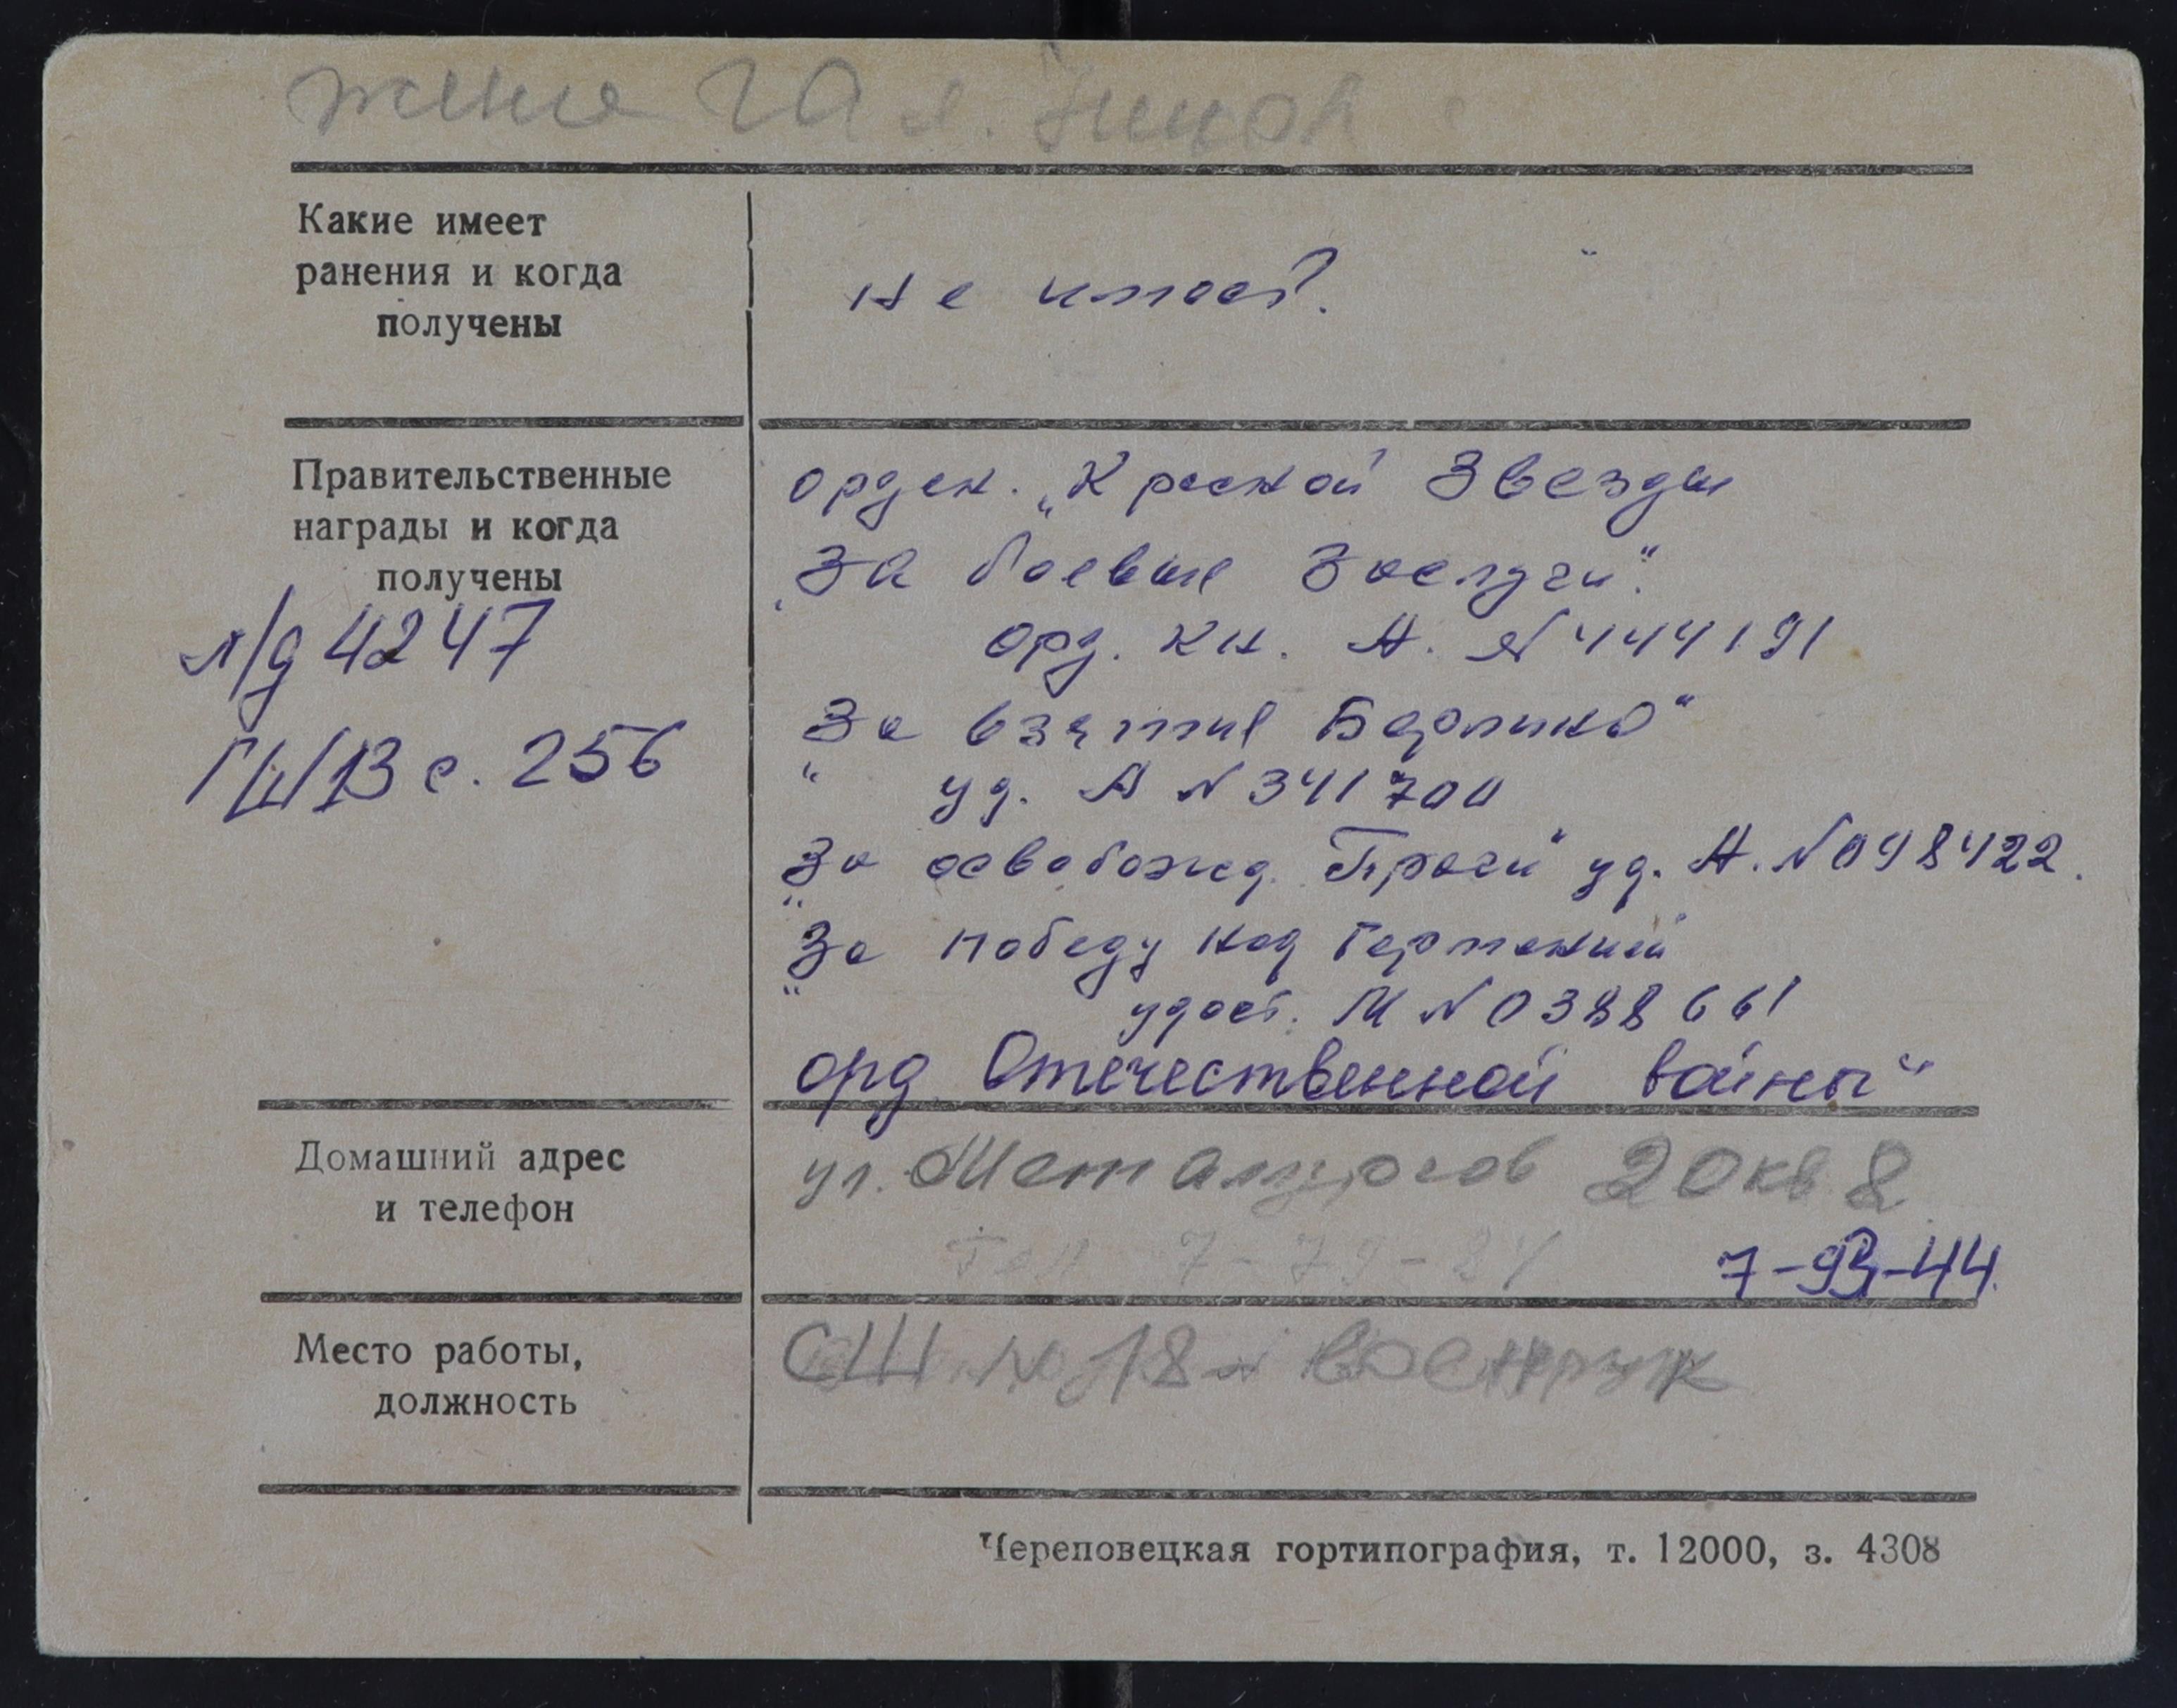 жена
Какие имеет
ранения и когда
получены
не имеет.
Правительственные
награды и когда
получены
л/д 4247
ГШ/13 с. 256
орден. „Красной Звезды
„За боевые заслуги".
орд. кн. А. № 444191
„За взятие Берлина"
уд. А № 341700
„За освобожд. Праги" уд. А. № 098422.
„За победу над Германией
удост. М № 0388661
орд Отечественной войны"
Домашний адрес
и телефон
ул. Металургов 20 кв 8
тел 7-79-24
7-93-44.
Место работы,
должность
СШ № 18 военрук
Череповецкая гортипография, т. 12000, з. 4308